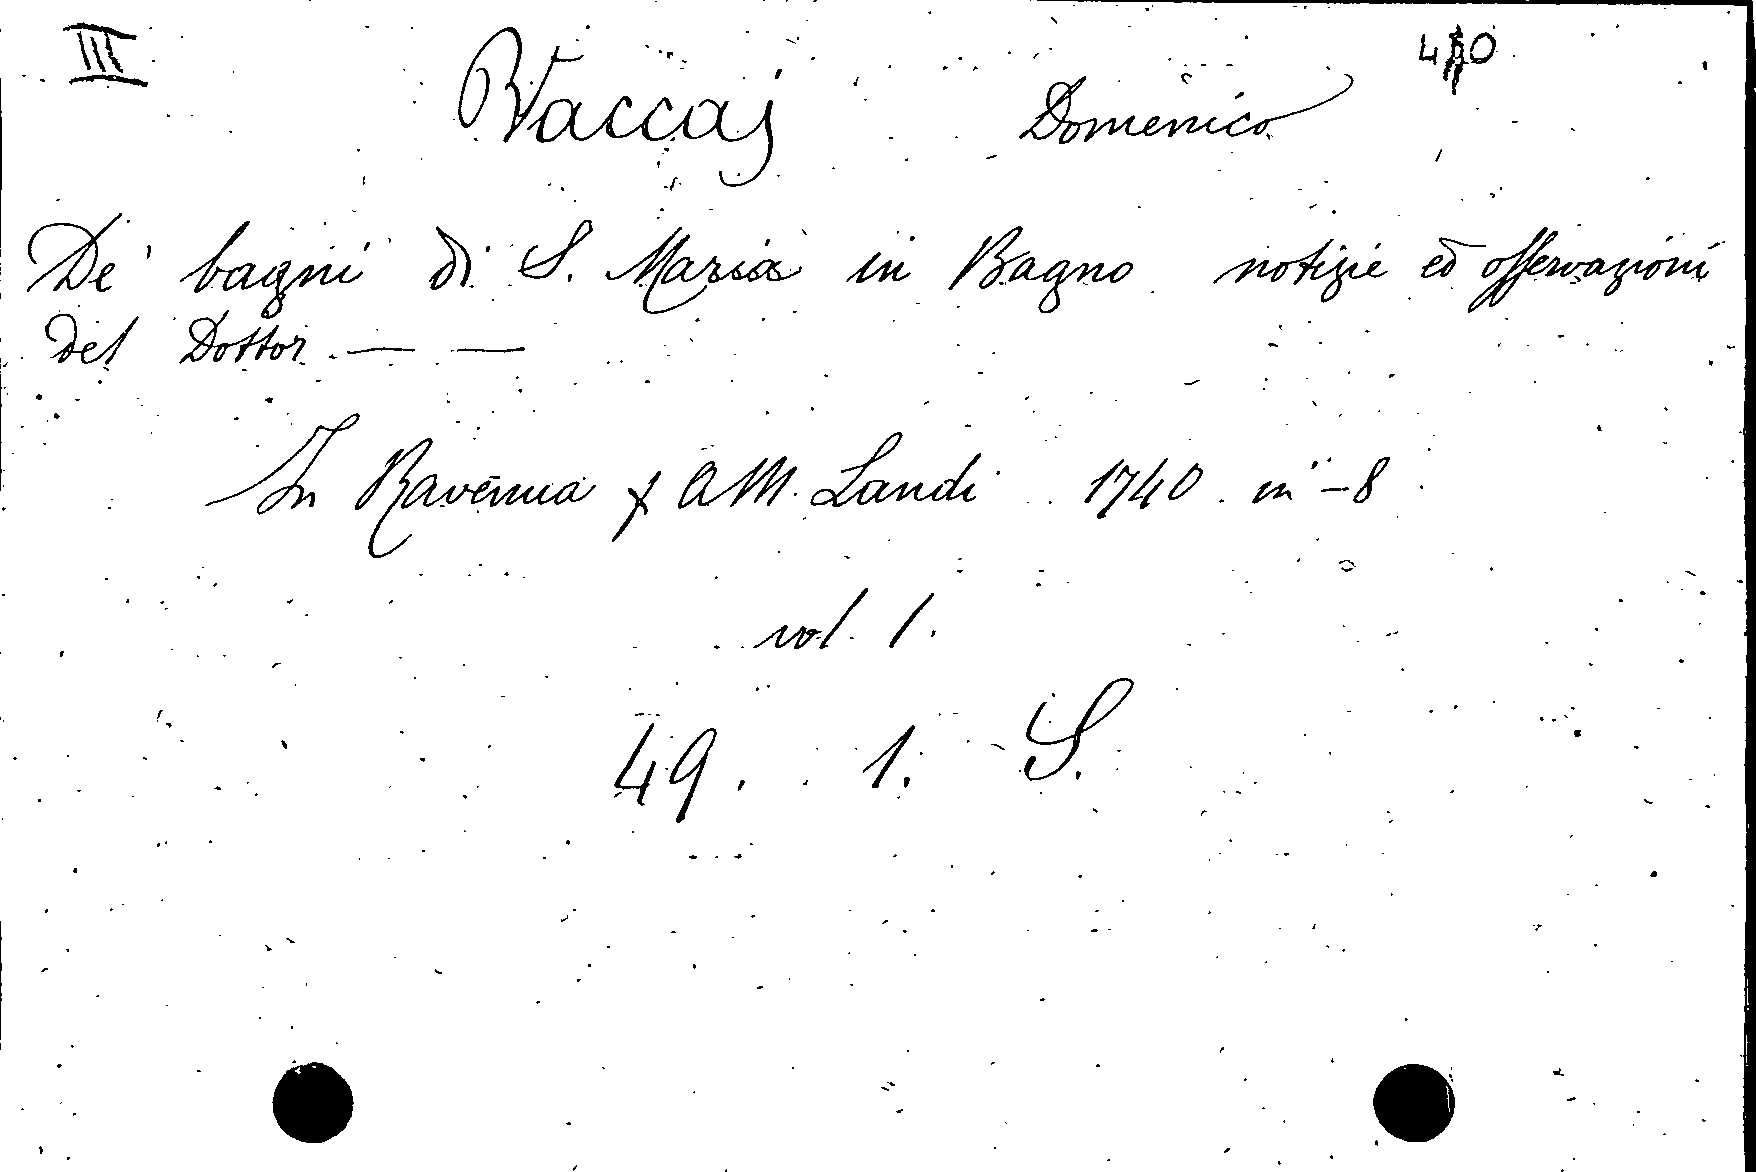 III
Vaccaj Domenico
De' bagni di S. Maria in Bagno notizie ed osservazioni
del Dottor — —
In Ravenna A M. Landi 1740 in-8
vol. 1.
49. 1. S.